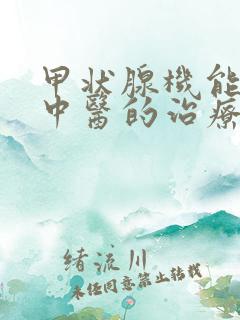 甲狀腺機能
中醫的治療
緒流川
未任同意禁止转载